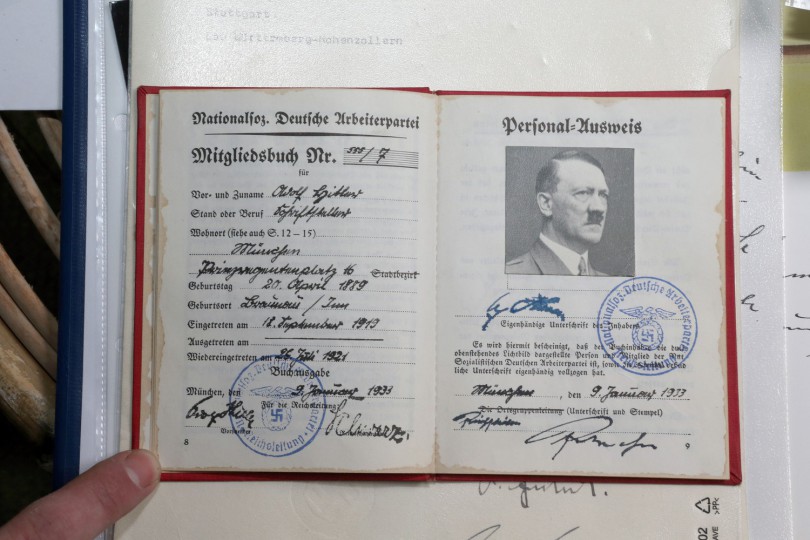 Stuttgart
Württemberg-Hohenzollern
Nationalsoz. Deutsche Arbeiterpartei
Mitgliedsbuch Nr. 555/7
für
Vor- und Zuname Adolf Hitler
Stand oder Beruf Schriftsteller
Wohnort (siehe auch S. 12–15)
München
Prinzregentenplatz 16 Stadtbezirk
Geburtstag 20. April 1889
Geburtsort Braunau / Inn
Eingetreten am 18. September 1919
Ausgetreten am
Wiedereingetreten am 26. Juli 1921
Buchausgabe
München, den 9. Januar 1933
Für die Reichsleitung:
Vorsitzender
Reichsleitung
8
Personal-Ausweis
Eigenhändige Unterschrift des Inhabers
Nationalsoz. Deutsche Arbeiterpartei
Reichsleitung
Es wird hiermit bescheinigt, daß der Buchinhaber die auf
obenstehendes Lichtbild dargestellte Person und Mitglied der Nat.
Sozialistischen Deutschen Arbeiterpartei ist, sowie die
liche Unterschrift eigenhändig vollzogen hat.
München, den 9. Januar 1933
Die Ortsgruppenleitung (Unterschrift und Stempel)
9
02
>PP<